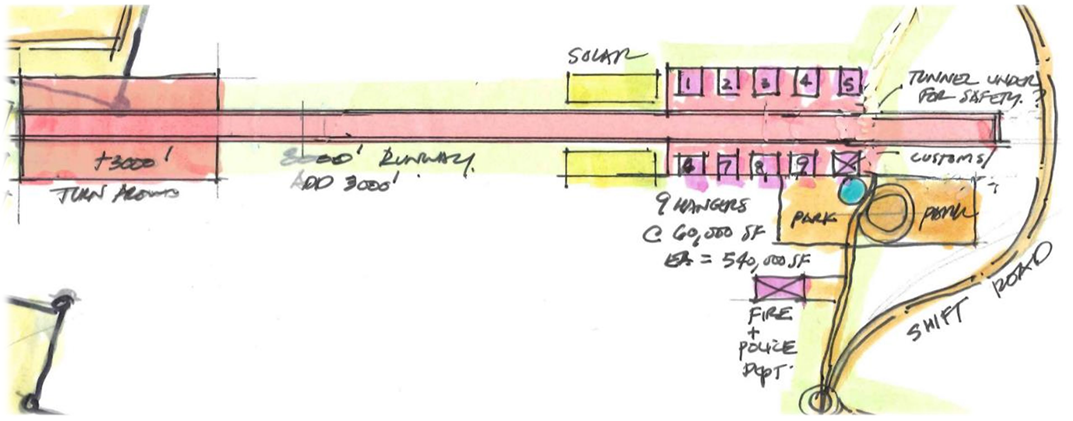 SOLAR
1 2 3 4 5
TUNNEL UNDER
FOR SAFETY. ?
+3000'
TURN AROUND
8000' RUNWAY
ADD 3000'
6 7 8 9
CUSTOMS/
9 HANGERS
@ 60,000 SF
EA = 540,000 SF
PARK PARK
FIRE
+
POLICE
DEPT.
SHIFT ROAD